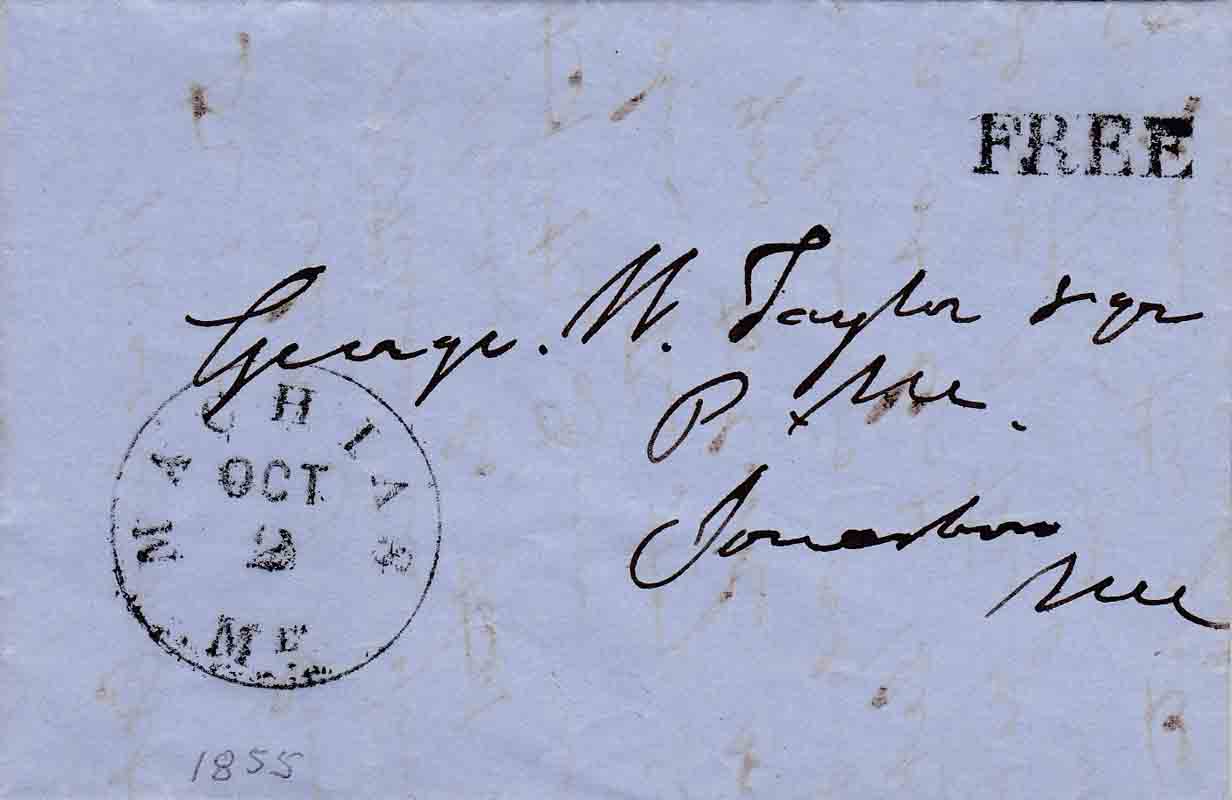 FREE
George. W. Taylor Esqr
P. M.
Jonesboro
Me
MACHIAS
OCT
2
ME
1855